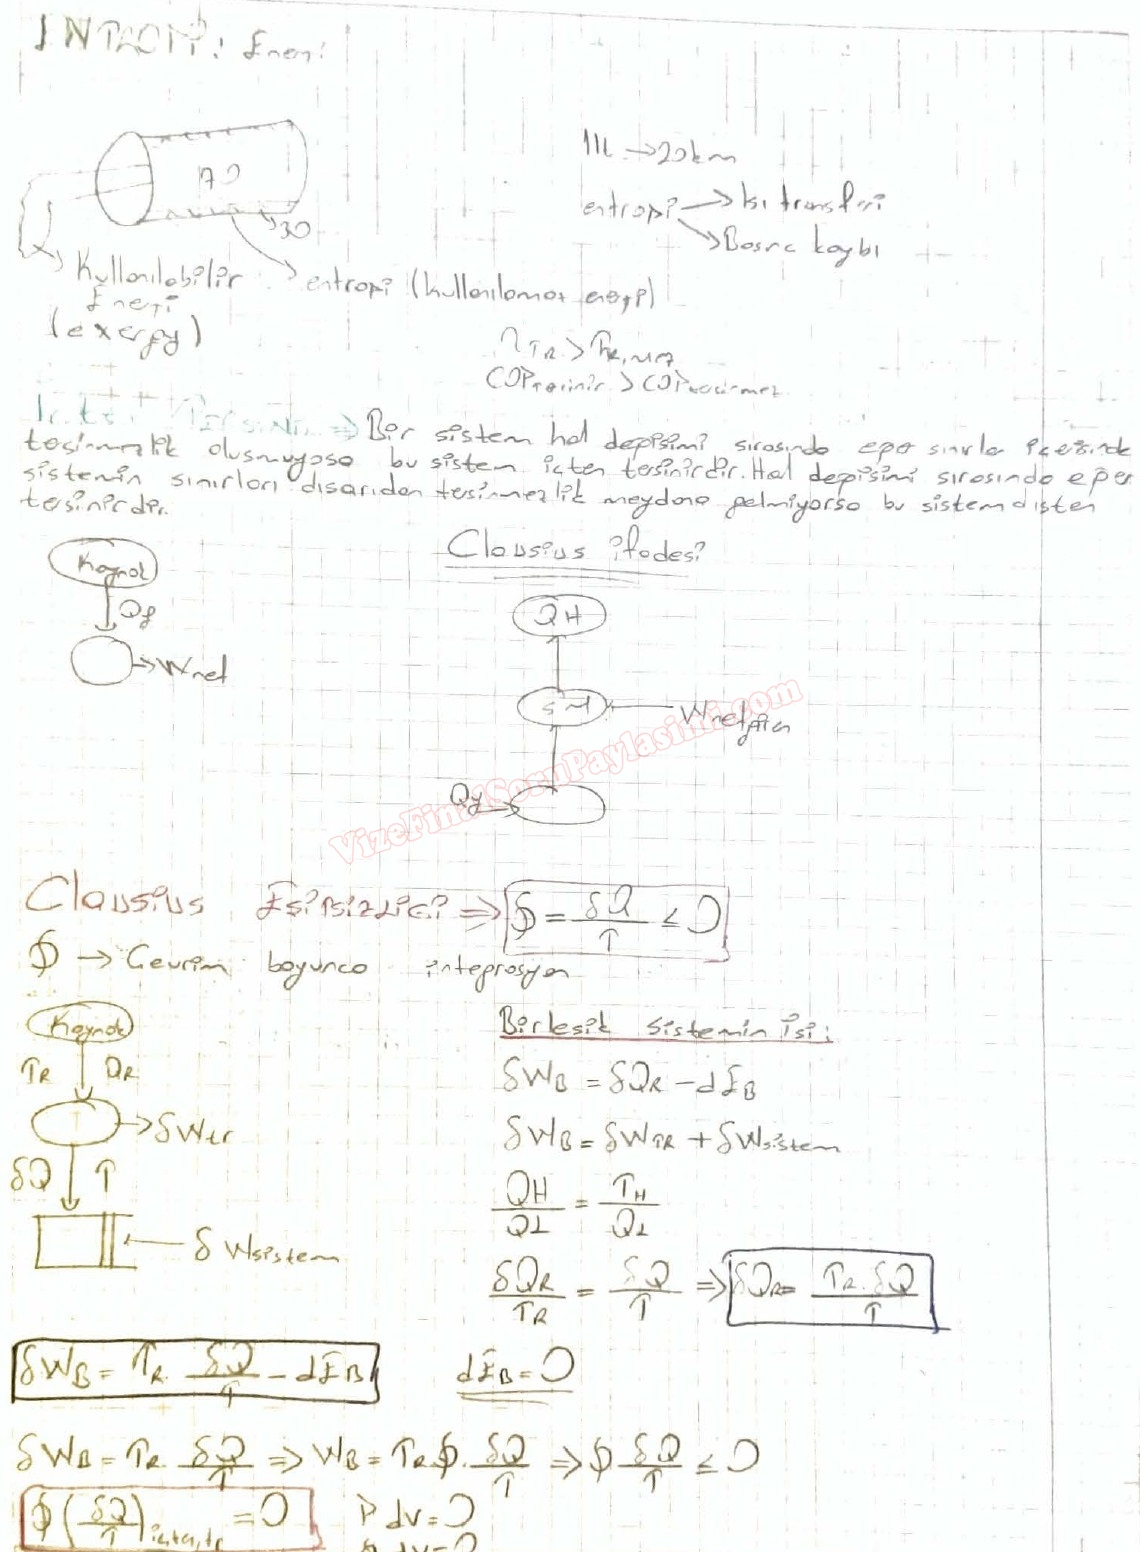 ENTROPİ: Enerji
70
30
1lt → 20km
entropi → Isı transferi
→ Basınç kaybı
Kullanılabilir
Enerji
(exergy)
entropi (kullanılamaz enerji)
η TR > TR,MEZ
COP tersinir > COP tersinmez
İçten Tersinir ⇒ Bir sistem hal değişimi sırasında eğer sınırlar içerisinde
tersinmezlik oluşmuyorsa bu sistem içten tersinirdir. Hal değişimi sırasında eğer
sistemin sınırları dışarıdan tersinmezlik meydana gelmiyorsa bu sistem dıştan
tersinirdir.
Clausius ifadesi
Kaynak
Qg
Wnet
QH
SM
Wnet,giren
Qy
VizeFinalSoruPaylasimi.com
Clausius EŞİTSİZLİĞİ ⇒ ∮ = δQ/T ≤ 0
∮ → Çevrim boyunca integrasyon
Kaynak
TR QR
δWtr
δQ T
δWsistem
Birleşik Sistemin İşi:
δWB = δQR - dEB
δWB = δWTR + δWsistem
QH/QL = TH/QL
δQR/TR = δQ/T ⇒ δQR = TR.δQ/T
δWB = TR. δQ/T - dEB
dEB = 0
δWB = TR. δQ/T ⇒ WB = TR ∮. δQ/T ⇒ ∮ δQ/T ≤ 0
∮ (δQ/T) içten,tr = 0
P dv = 0